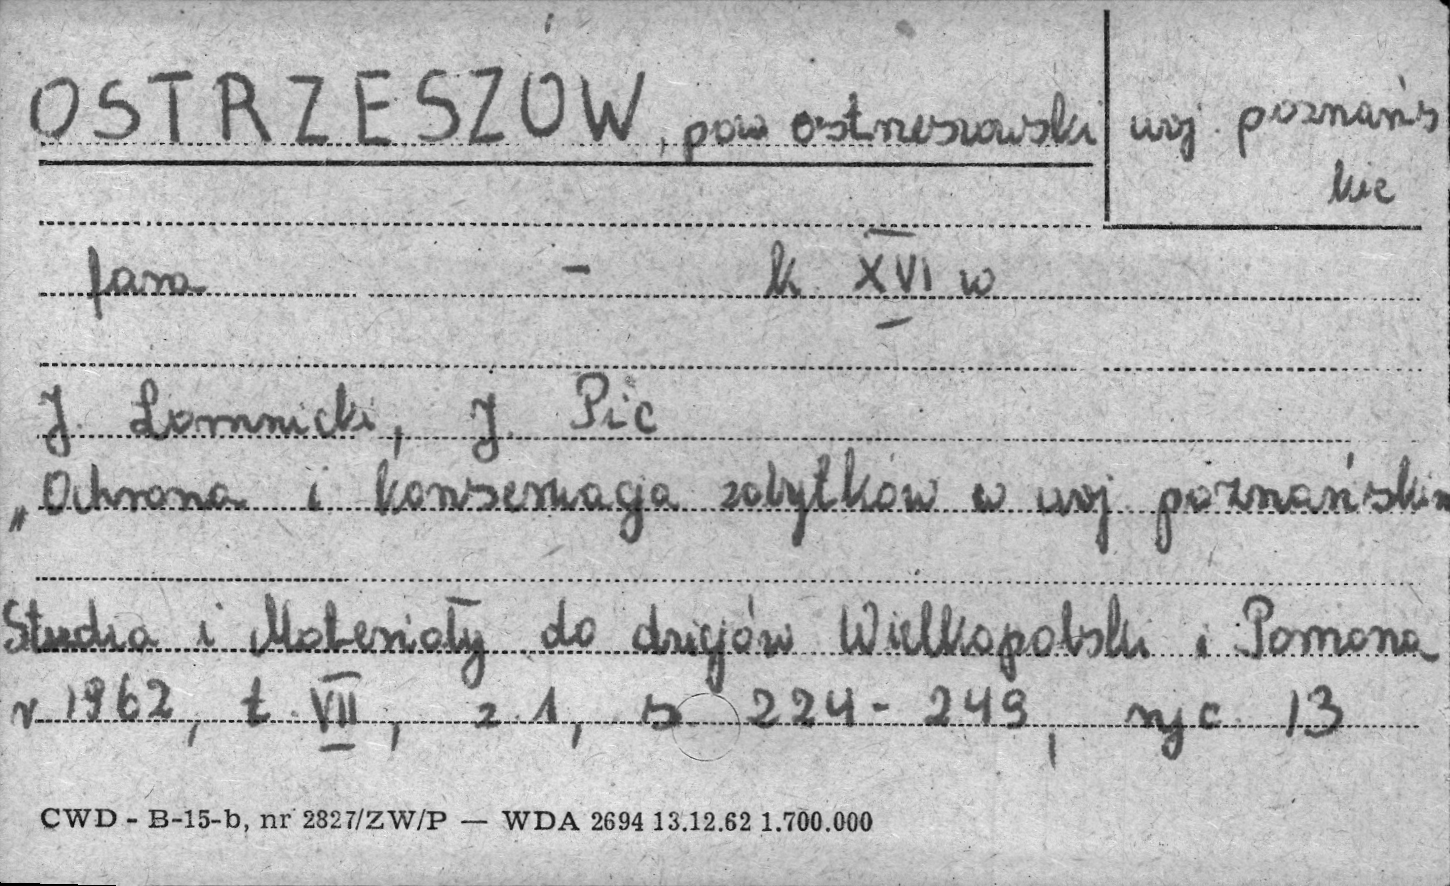 OSTRZESZÓW, pow ostrzeszowski
woj. poznańs
kie
fara - k. XVI w
J. Łomnicki, J. Pic
„Ochrona i konserwacja zabytków w woj. poznańskim
Studia i Materiały do dziejów Wielkopolski i Pomorza
r 1962, t. VII, z 1, s. 224-249, ryc. 13
CWD - B-15-b, nr 2827/ZW/P — WDA 2694 13.12.62 1.700.000